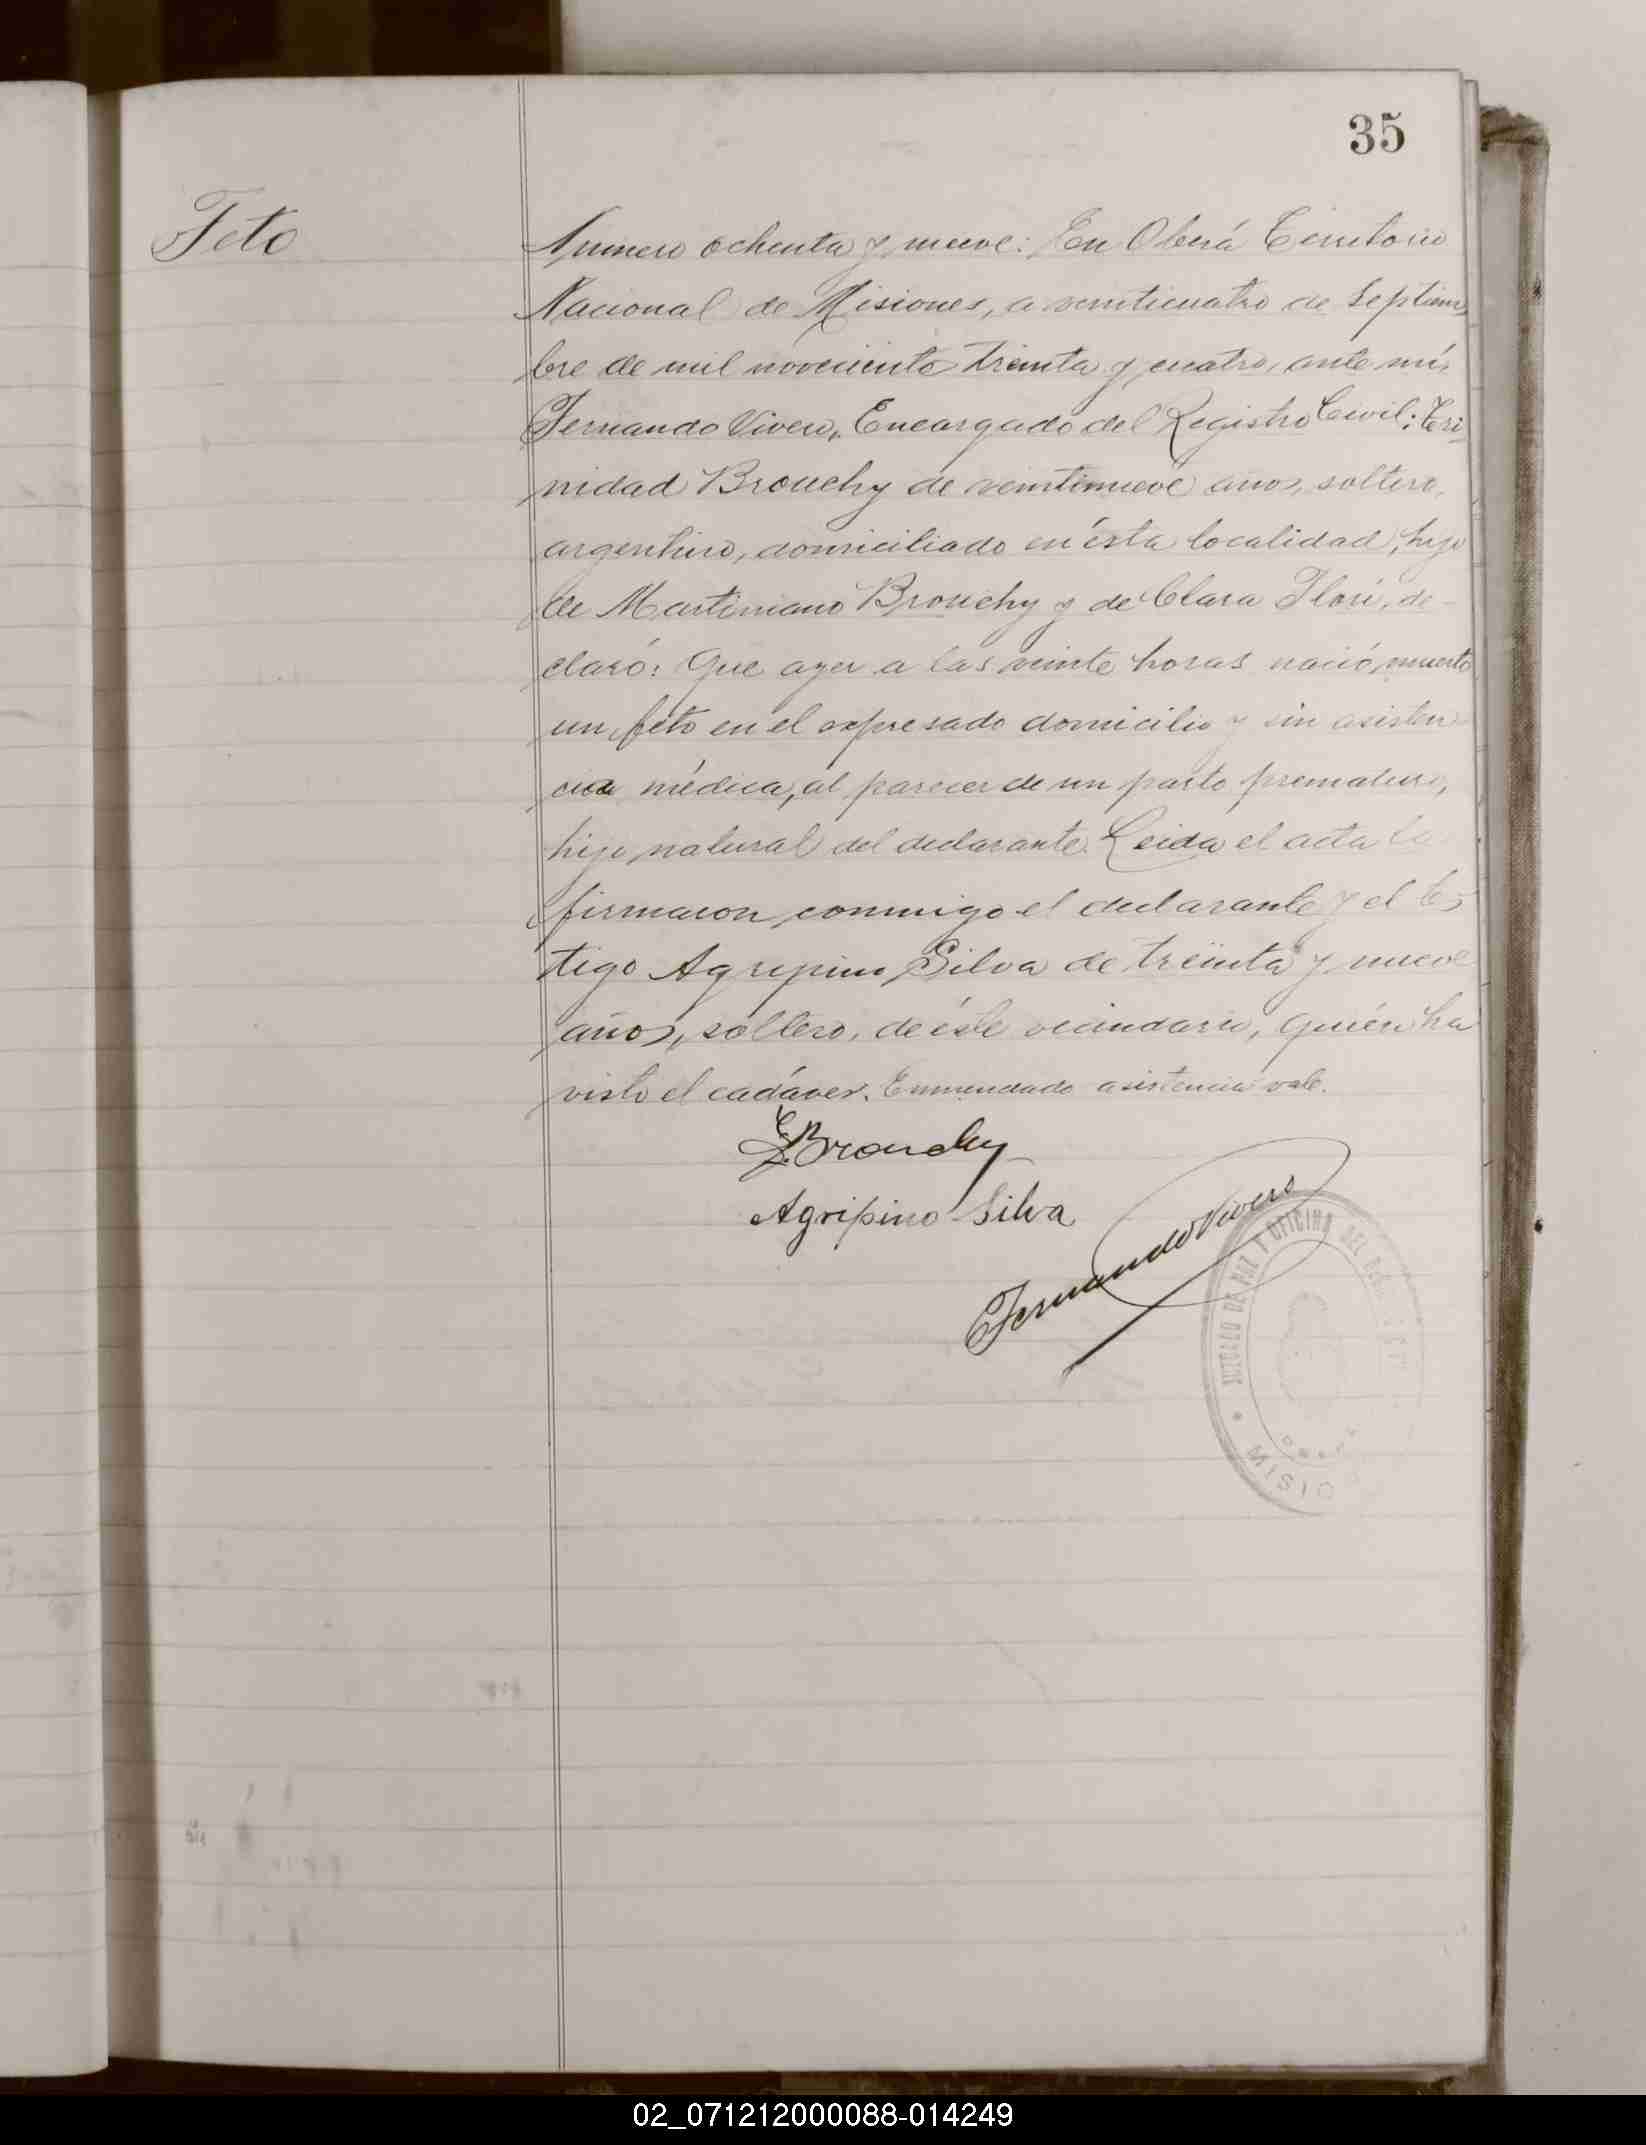 35
Feto
Número ochenta y nueve: En Oberá Territorio
Nacional de Misiones, a veinticuatro de Septiem
bre de mil novecientos treinta y cuatro, ante mí,
Fernando Vivero, Encargado del Registro Civil: Tri
nidad Brouchy de veintinueve años, soltero,
argentino, domiciliado en ésta localidad, hijo
de Martiniano Brouchy y de Clara Flori, de-
claró: Que ayer a las veinte horas nació, muerto
un feto en el expresado domicilio y sin asisten
cia médica, al parecer de un parto prematuro,
hijo natural del declarante. Leida el acta la
firmaron conmigo el declarante y el tes
tigo Agripino Silva de treinta y nueve
años, soltero, de éste vecindario, quién ha
visto el cadáver. Enmendado asistencia vale.
Brouchy
Agripino Silva
Fernando Vivero
JUZGADO DE PAZ Y OFICINA DEL
MISIO
02_071212000088-014249